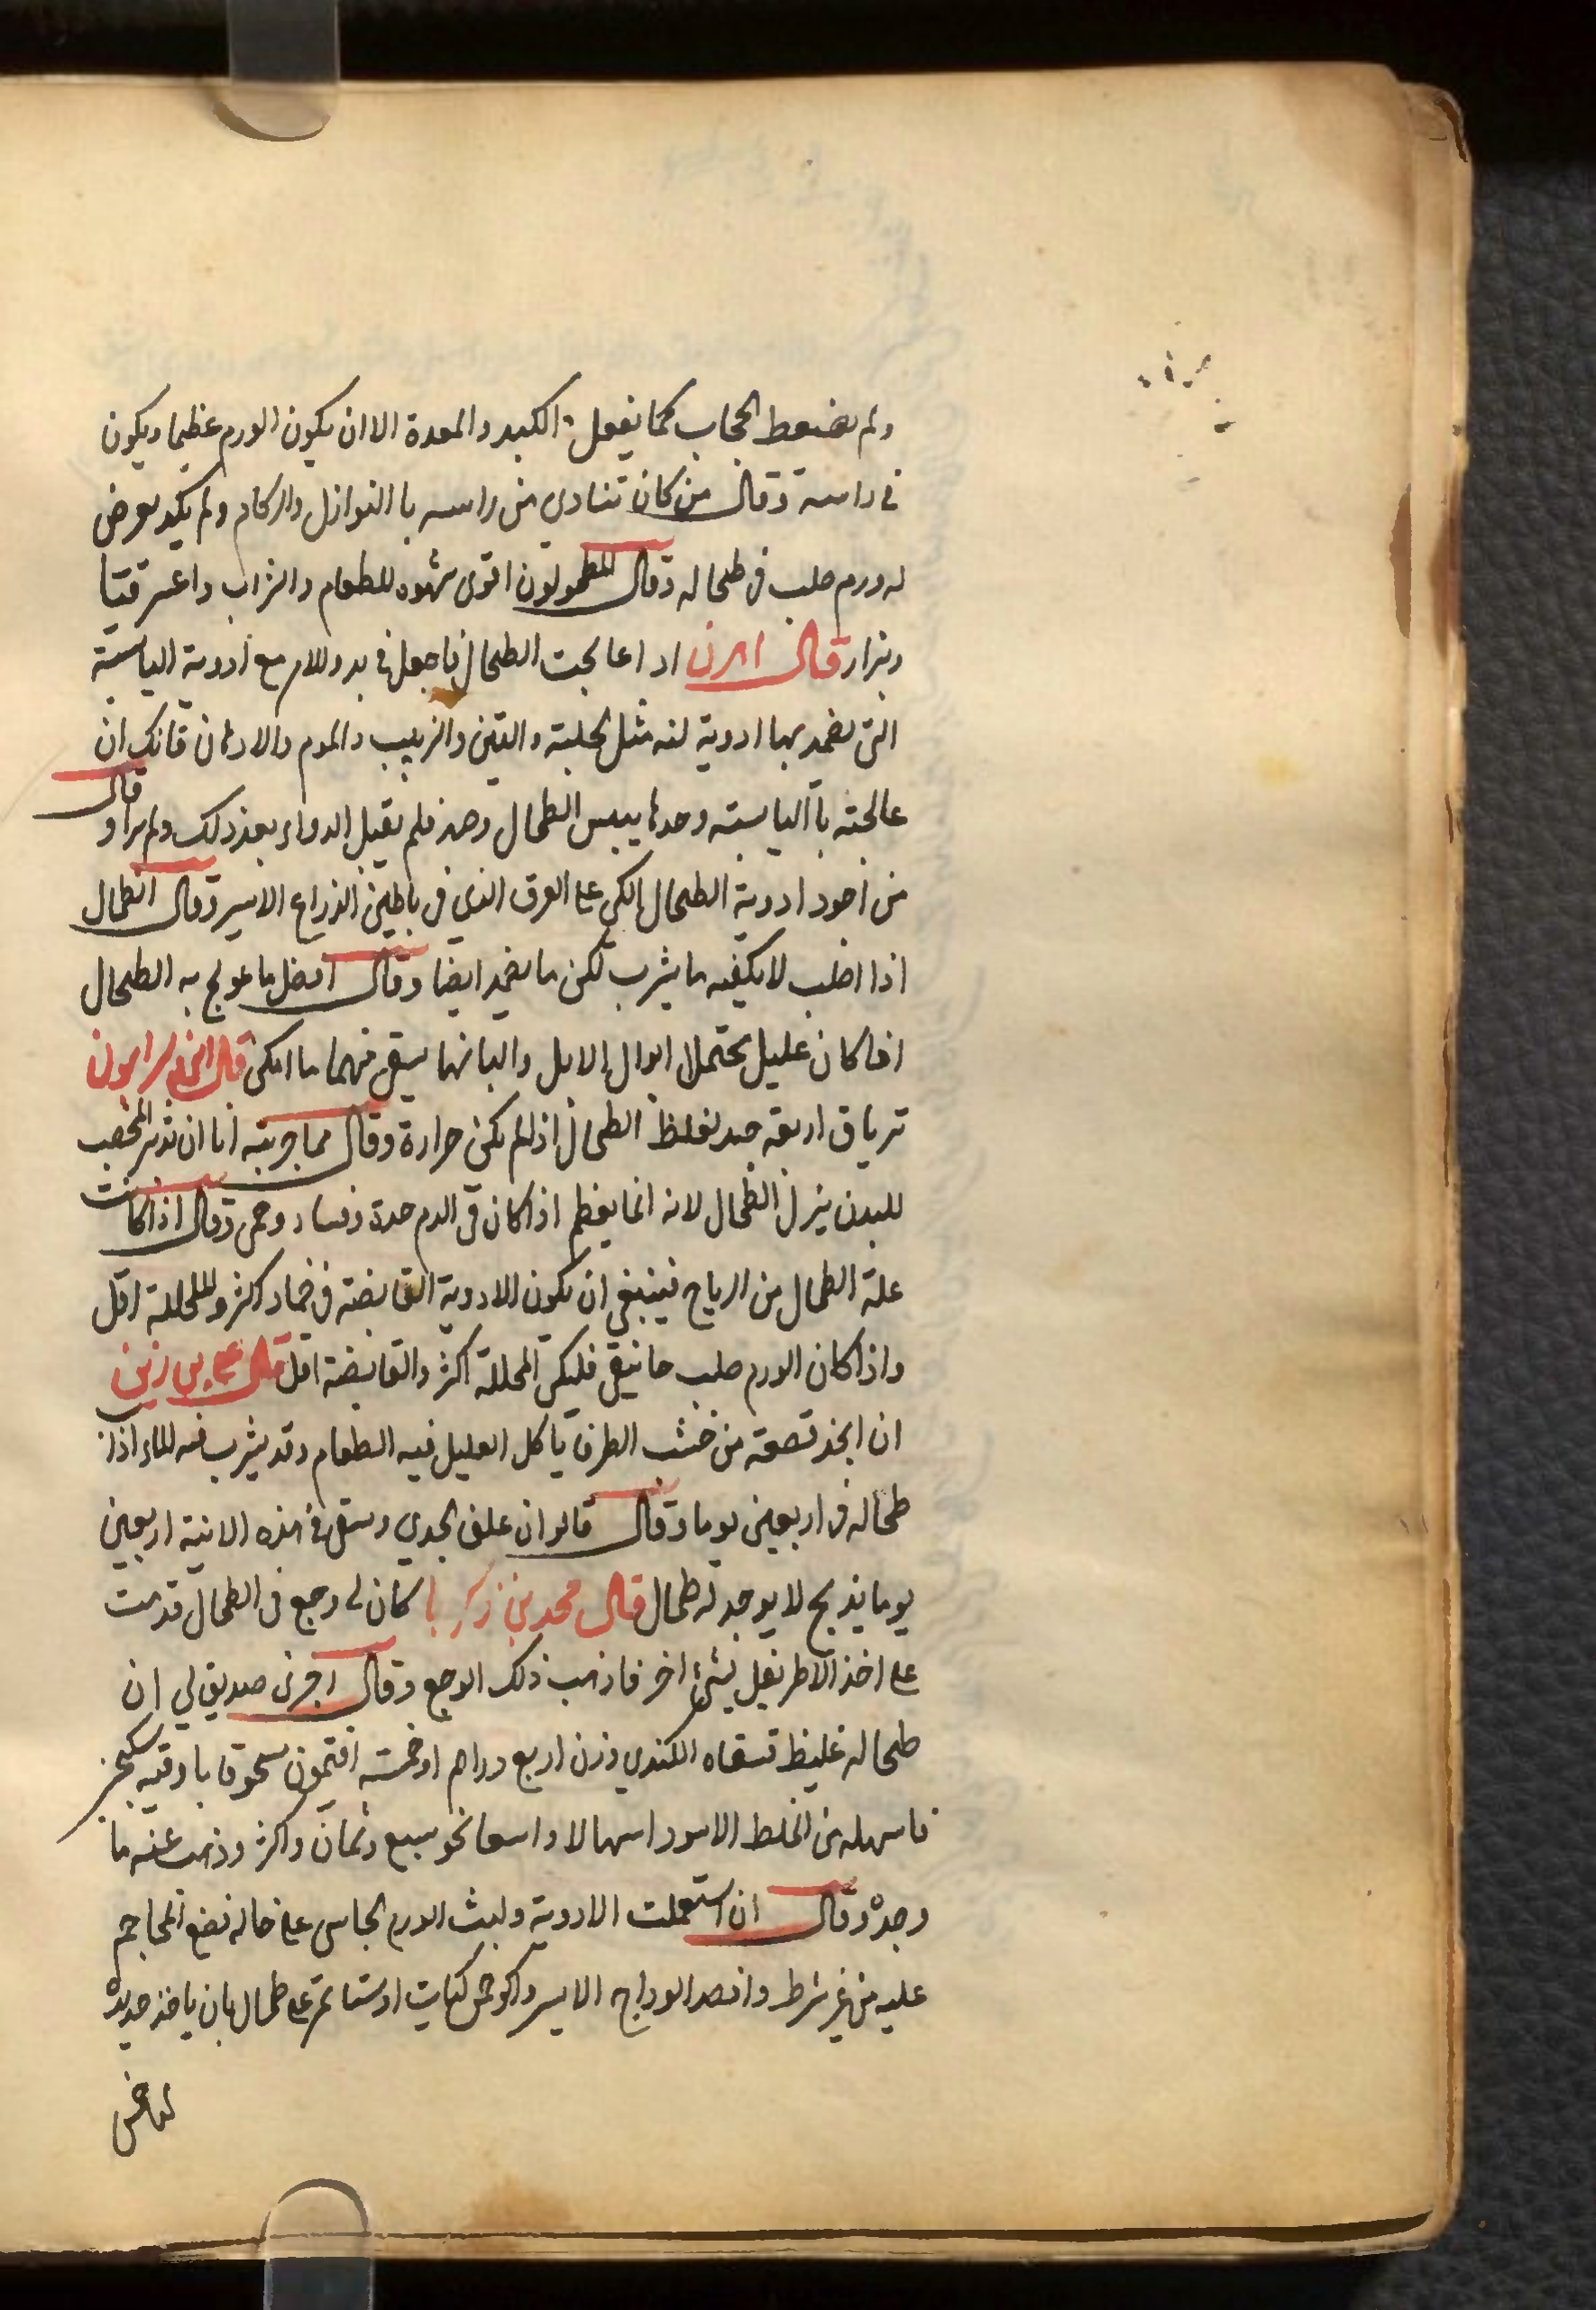 ولم يضغط الحجاب كما يفعل الكبد والمعدة الا ان يكون الورم عظيما ويكون
في راسه وقال من كان تنادى من راسه باالنوازل والزكام ولم يكد يعرض
له ورم صلب في طحاله وقال المطحولون اقوى شهوه للطعام والشراب واعسر قيئا
وبزار قال اهرن اذا عالجت الطحال فاجعل في مع ادوية اليابسة
التي يضمد بها ادوية لينه مثل الحلبة والتين والزبيب والموم والادهان فانك ان
عالجته باآليابسته وحدها ييبس الطحال فلم يقبل الدواء بعد ذلك ولم يبرا و قال
من اجود ادوية الطحال الكي على العرق الذي في باطن الذراع الايسر وقال الطحال
اذا اصلب لا يكفيه ما يشرب لكن ما يضمد ايضا وقال افضل ما عولج به الطحال
اذا كان عليل يحتمل ابوال الابل والبانها يسقى منهما ما امكن قال ابن سرابيون
ترياق اربعه جيد لغلظ الطحال اذا لم يكن حرارة وقال مما جربته انا ان تدبير المخصب
للبدن ينزل الطحال لانه انما يعظم اذا كان في الدم حدة وفساد وحمى وقال اذا كانت
علة الطحال من الرياح فينبغي ان يكون الادوية القابضة في ضماد اكثر والمحللة اقل
واذا كان الورم صلب خانيق فليكن المحللة اكثر والقابضة اقل قال علي بن زين
ان اتخذ قصعة من خشب الطرفا ياكل العليل فيه الطعام وقد يشرب فيه الماء اذاب
طحاله في اربعين يوما وقال قالوا ان علف الجدي وسقى في هذه الانية اربعين
يوما يذبح لا يوجد له طحال قال محمد بن زكريا كان لي وجع في الطحال قدمت
على اخذ الاطريفل بشيء اخر فاذهب ذلك الوجع وقال اخبرنى صديق لي ان
طحاله غليظ فسقاه الكندي وزن اربع دراهم او خمسة افتيمون مسحوقا باوقيه سكنجبين
فاسهله من الخلط الاسود اسهالا واسعا نحو سبع وثمان واكثر وذهب عنه ما
وجده وقال ان استعملت الادوية ولبث الورم الجاسى على حاله فضع المحاجم
عليه من غير شرط وافصد الوداج الايسر واكو خمس كيات او ستا على طحال بان ياخذ حديده